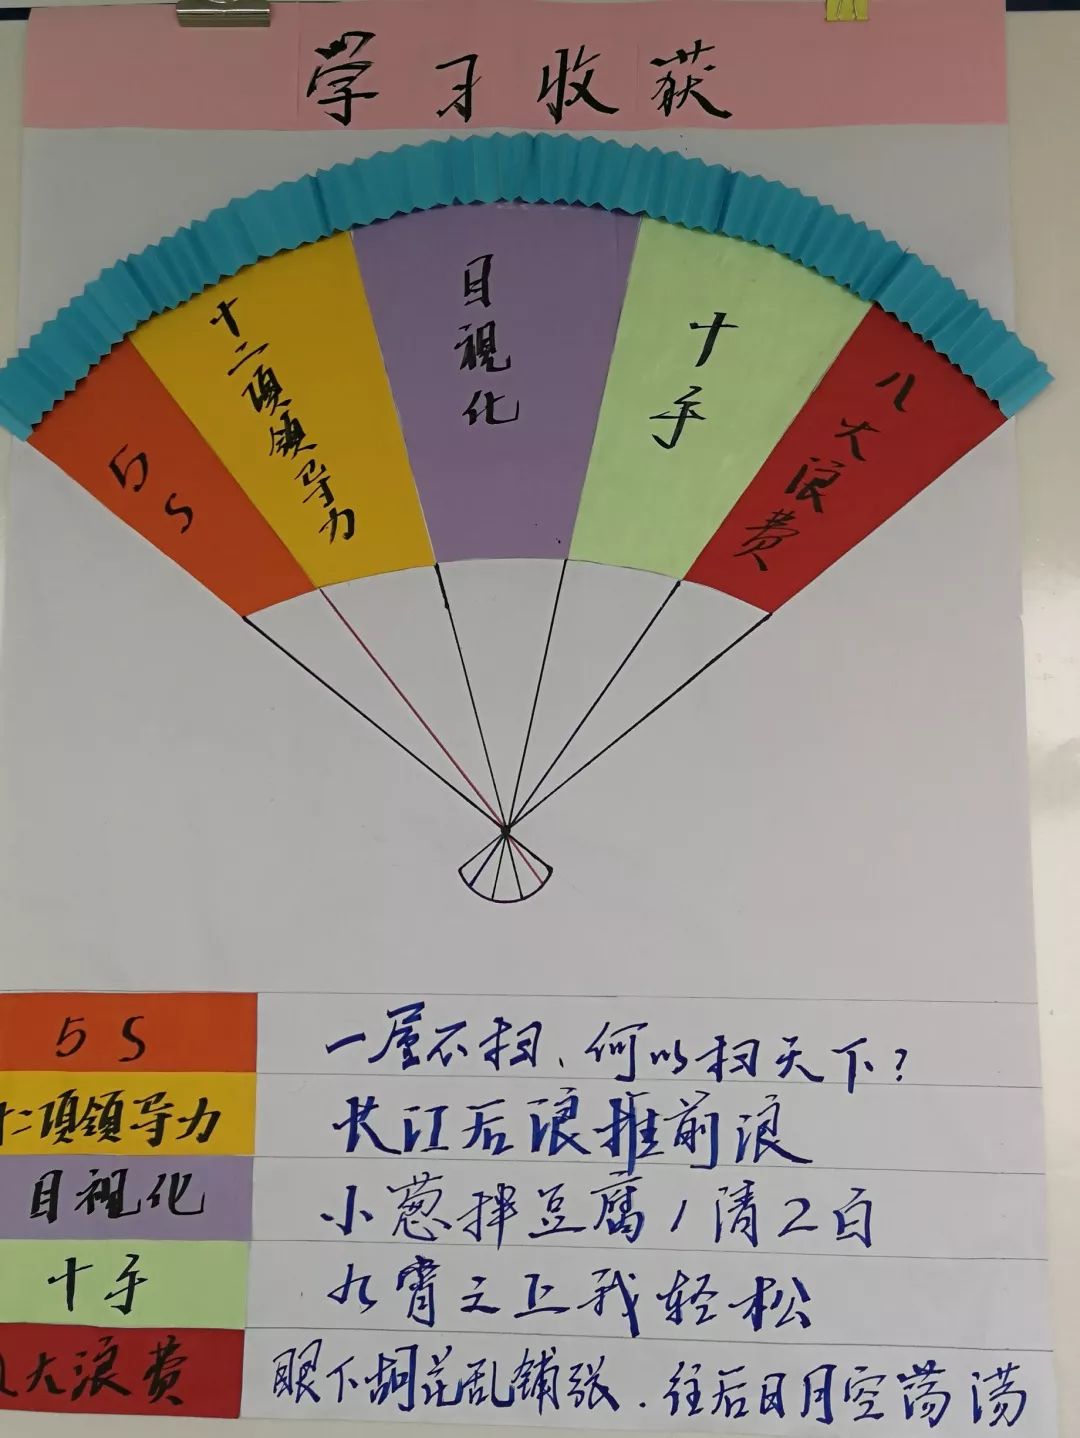 学习收获
5S
十二项领导力
目视化
十手
八大浪费
5S
一屋不扫、何以扫天下?
十二项领导力
长江后浪推前浪
目视化
小葱拌豆腐1清2白
十手
九霄之上我轻松
八大浪费
眼下胡花乱铺张.往后日月空荡荡